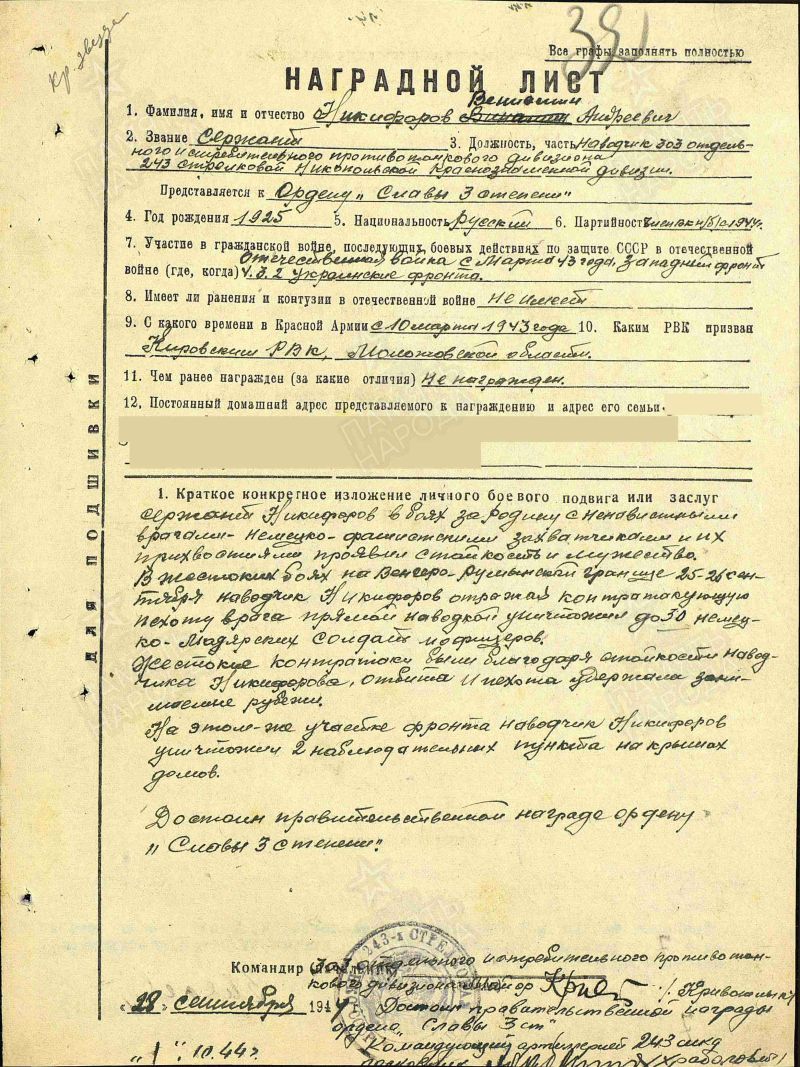 Кр. звезда
39
Все графы заполнять полностью
НАГРАДНОЙ ЛИСТ
1. Фамилия, имя и отчество Никифоров Андреевич
2. Звание Сержант 3. Должность, часть Наводчик 303 отдель-
ного истребительного противотанкового дивизиона
243 стрелковой Никопольской Краснознаменной дивизии.
Представляется к Ордену „Славы 3 степени"
4. Год рождения 1925 5. Национальность Русский 6. Партийность член ВКП/б/ с 1944г.
7. Участие в гражданской войне, последующих боевых действиях по защите СССР в отечественной
Отечественная война с Марта 43 года, Западный фронт
войне (где, когда) 2 Украинские фронта.
8. Имеет ли ранения и контузии в отечественной войне не имеет
9. С какого времени в Красной Армии с 10 марта 1943 года 10. Каким РВК призван
Кировским РВК, Молотовской области.
11. Чем ранее награжден (за какие отличия) Не награжден.
12. Постоянный домашний адрес представляемого к награждению и адрес его семьи
ДЛЯ ПОДШИВКИ
1. Краткое конкретное изложение личного боевого подвига или заслуг
Сержант Никифоров в боях за Родину с ненавистными
врагами- немецко-фашистскими захватчиками и их
прихвостнями проявил стойкость и мужество.
В жестоких боях на Венгеро-Румынской границе 25-26 сен-
тября наводчик Никифоров отражая контратакующую
пехоту врага прямой наводкой уничтожил до 30 немец-
ко-Мадярских солдат и офицеров.
Жестокие контратаки были благодаря стойкости навод-
чика Никифорова, отбиты и пехота удержала зани-
маемые рубежи.
На этом-же участке фронта наводчик Никифоров
уничтожил 2 наблюдательных пункта на крышах
домов.
Достоин правительственной награде ордену
„Славы 3 степени".
Командир 303 отдельного истребительного противотан-
кового дивизиона Майор
"28" сентября 1944 Достоин правительственной награды
ордена „Славы 3 ст"
Командующий артилерией 243
"1". 10.44г. полковник